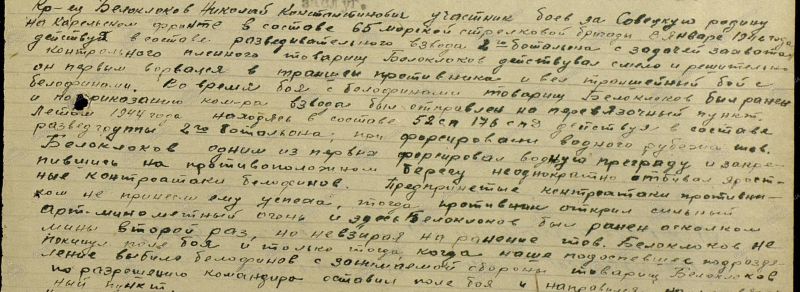 заслуг.
Кр-ец Белоклоков Николай Константинович участник боев за Советскую родину
на Карельском фронте в составе 65 морской стрелковой бригады в январе 194 года
действуя в составе разведывательного взвода 2го батальона с задачей захвата
контрольного пленного товарищ Белоклоков действувал смело и решительно
он первым ворвался в траншеи противника и вел траншейный бой с
белофинами. Во время боя с белофинами товарищ Белоклоков был ранен
и по приказанию ком-ра взвода был отправлен на перевязочный пункт.
Летом 1944 года находясь в составе 52сп 176 сд действуя в составе
разведгруппы 2го батальона; при форсировани водного рубежа тов.
Белоклоков одним из первых форсировал водную преграду и закре-
пившись на противоположном берегу неоднократно отбивал ярост-
ные контроатаки белофинов. Предпринетые контроатаки противни-
ком не принесли ему успеха, тогда противник открыл сильный
арт-минометный огонь и здесь Белоклоков был ранен осколком
мины второй раз, но невзирая на ранение тов. Белоклоков не
покинул поле боя и только тогда, когда наше подоспевшее подразде-
ление выбило белофинов с занимаемой обороны товарищ Белоклоков
по разрешению командира оставил поле боя и направился на
ный пункт.